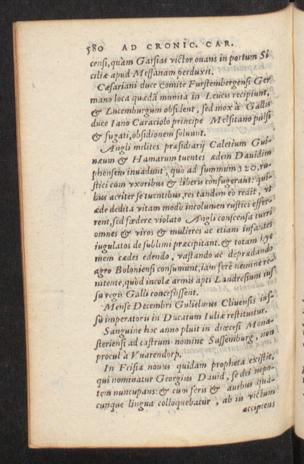 580 AD CRONIC. CAR.
censi, quàm Garsias victor ouans in portum Si
ciliæ apud Messanam perduxit.
Cæsariani duce Comite Furstembergensi Ger
mano loca quædā munita in Leucis recipiunt,
& Lucemburgum obsident, sed mox à Gallis
duce Iano Caraciolo principe Melfitano pulsi
& fugati, obsidionem soluunt.
Angli milites præsidiarij Caletium Gui-
neum & Hamarum tuentes adem Dauidim
phensem inuadunt, quò ad summum 320, rus
tici cum vxoribus & liberis confugerant: qui-
bus acriter se tuentibus, res tandem eo redit, vt
æde dedita vitam modo incolumen rustici esser-
rent, sed fœdere violato Angli conscensa turri
omnes & viros & mulieres ac etiam infantes
iugulatos de sublimi præcipitant. & totam hye
mem cædes edendo, vastando ac deprædando
agro Boloniensi consumunt, iam ferè nemine re
nitente, quòd incolæ armis apti Landresium ius
su regis Galli concessissent.
Mense Decembri Gulielmus Cliuensis ius-
su imperatoris in Ducatum Iuliæ restituitur.
Sanguine hoc anno pluit in diœcesi Mona-
steriensi ad castrum nomine Sassemburg, non
procul à Vuarendorp.
In Frisia nouus quidam propheta existit,
qui nominatur Georgius Dauid, se dei nepo-
tem nuncupans: & cum feris & auibus qua-
cunque lingua colloquebatur, ab iis victum
accipiens